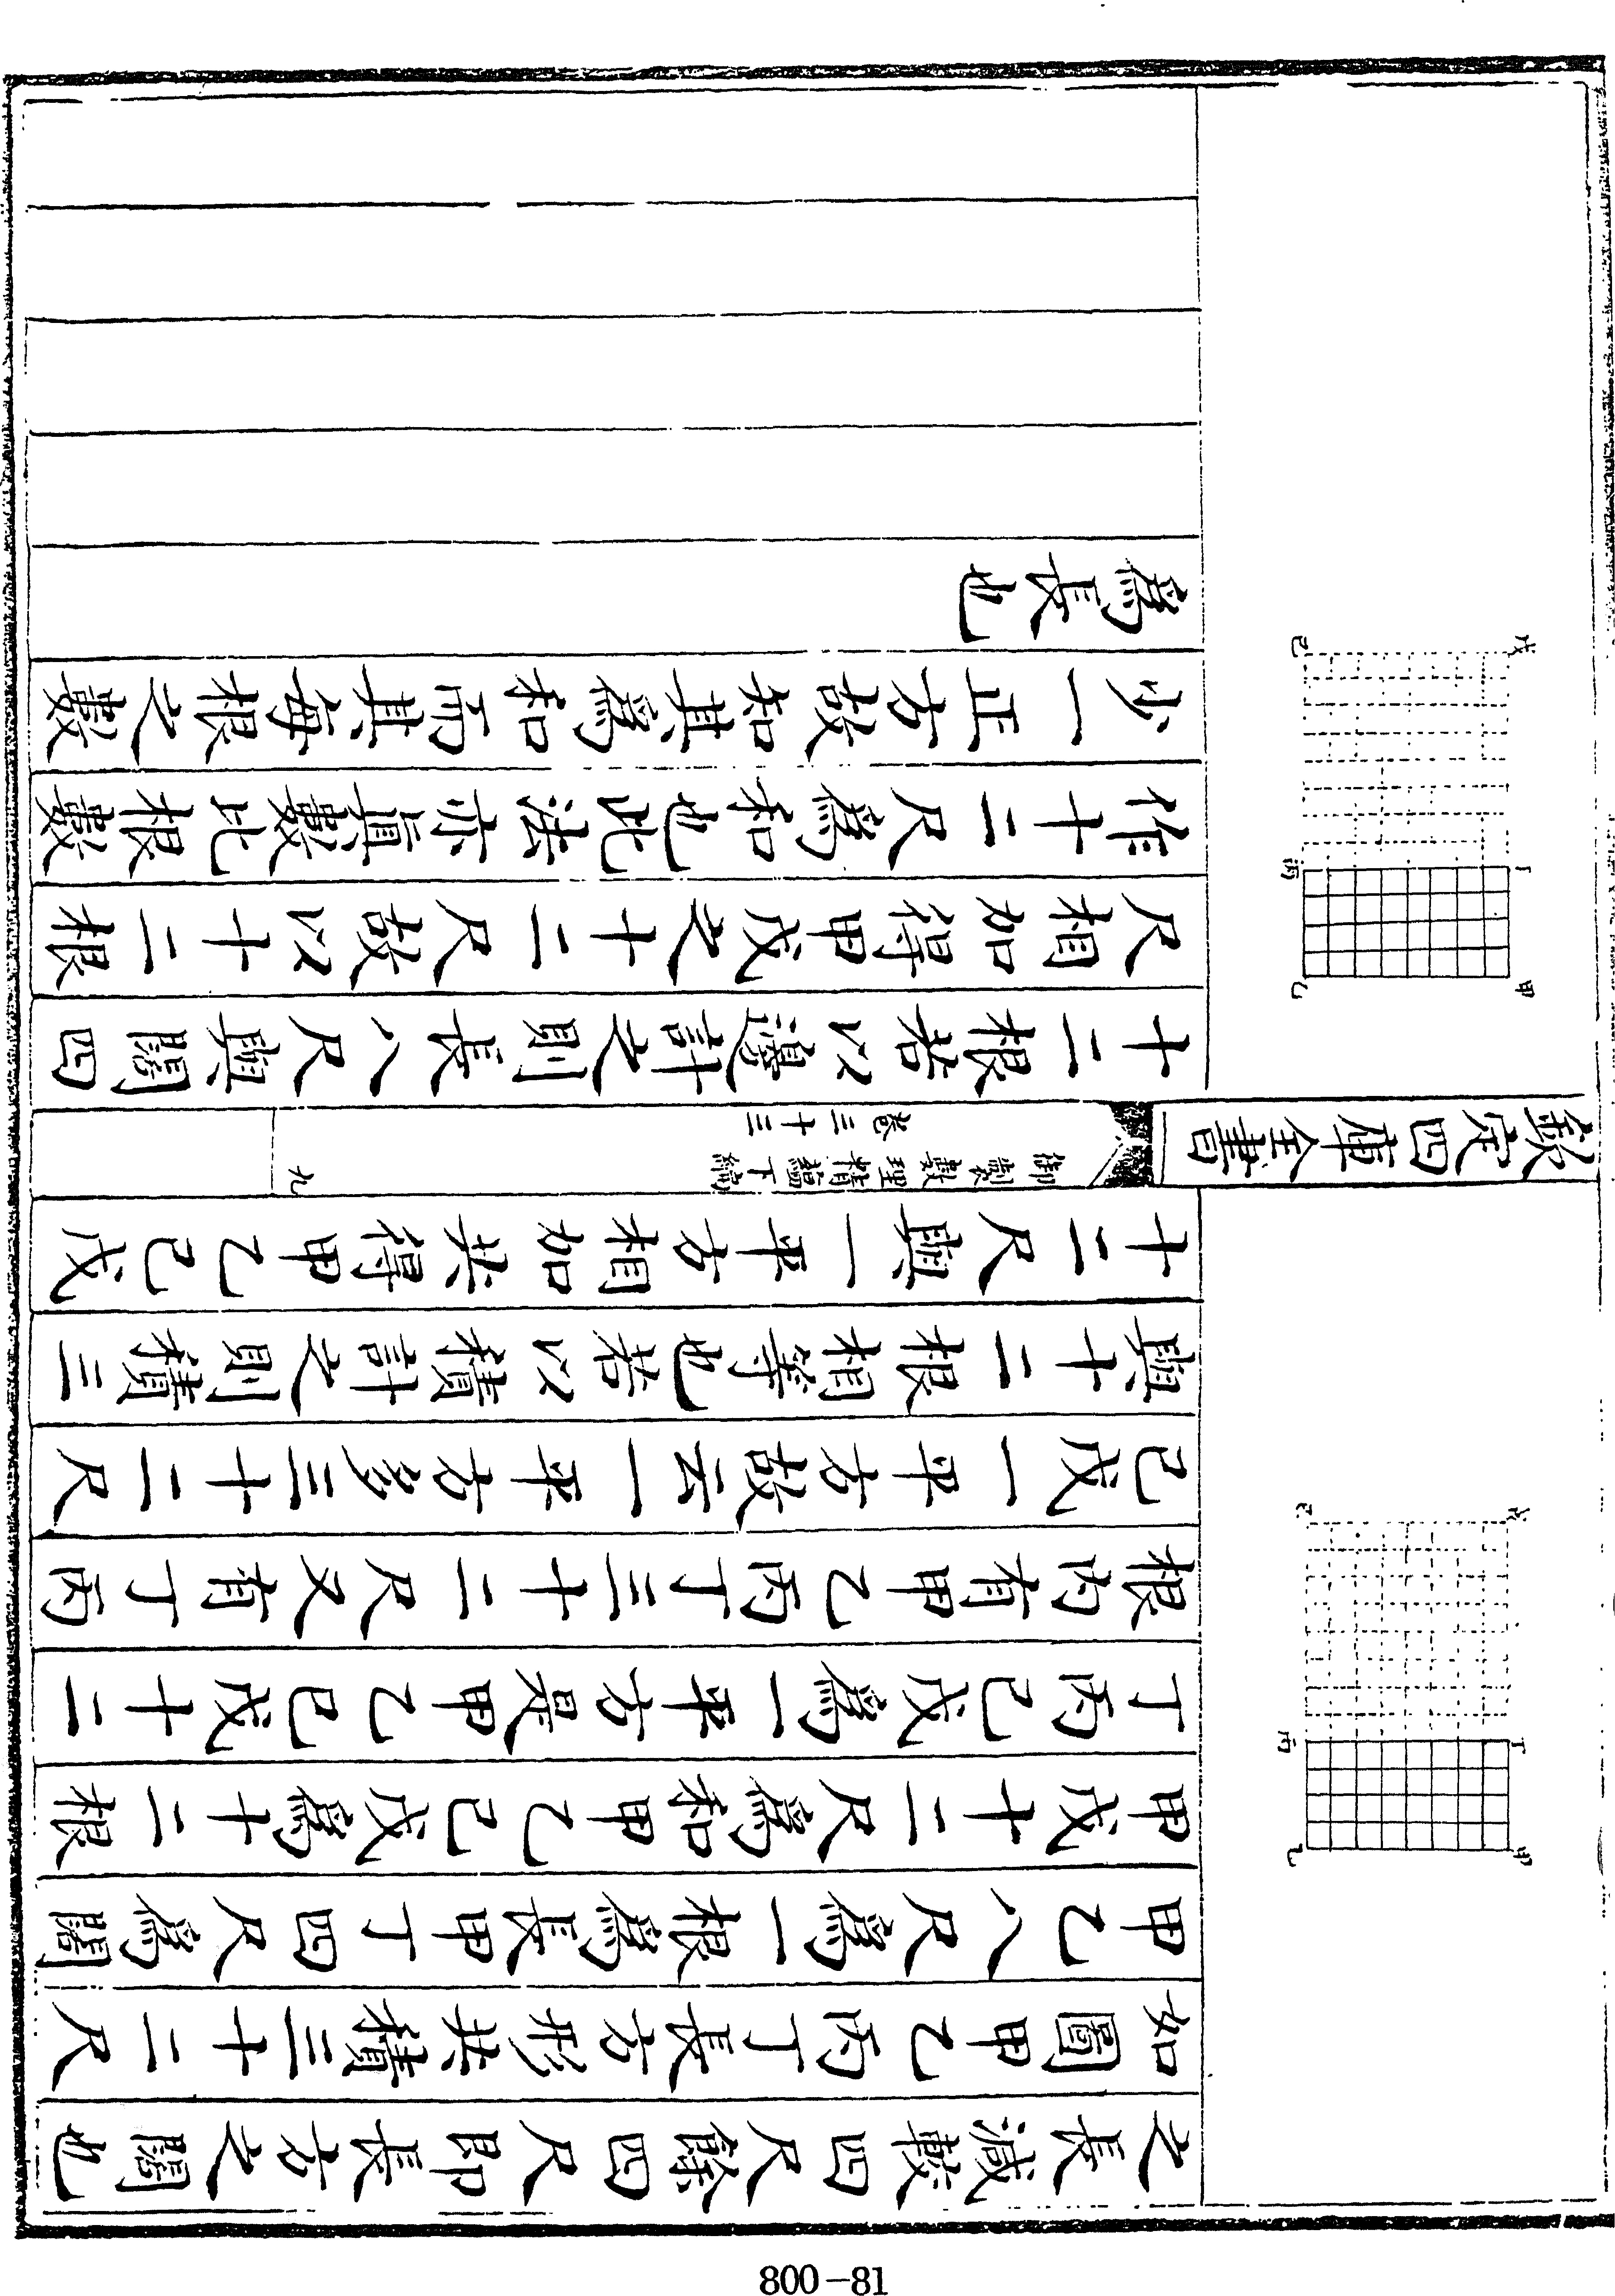 之長減較四尺餘四尺即長方之闊也
如圖甲乙丙丁長方形共積三十二尺
甲乙八尺爲一根爲長甲丁四尺爲闊
甲戊十二尺爲和甲乙己戊爲十二根
丁丙己戊爲一平方是甲乙己戊十二
根內有甲乙丙丁三十二尺又有丁丙
己戊一平方故云一平方多三十二尺
與十二根相等也若以積計之則積三
十二尺與一平方相加共得甲乙己戊
甲乙
丁丙
戊己
欽定四庫全書
御製數理精蘊下編
卷三十三
九
十二根若以邊計之則長八尺與闊四
尺相加得甲戊之十二尺故以十二根
作十二尺爲和也此法亦真數比根數
少一正方故知其爲和而其每根之數
爲長也
甲乙
丁丙
戊己
800-81